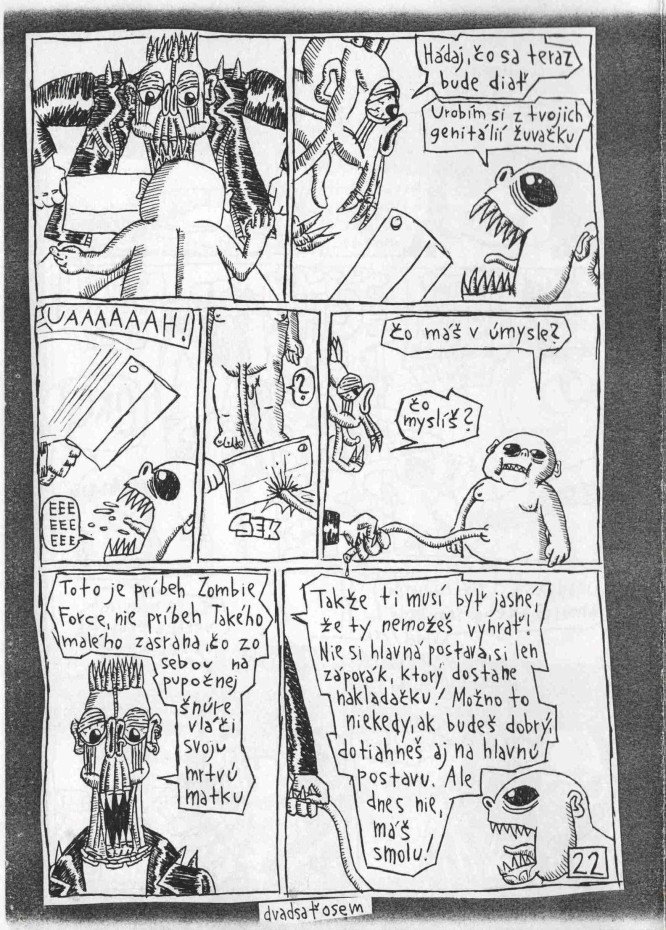 Hádaj, čo sa teraz
bude diať
Urobím si z tvojich
genitálií žuvačku
UAAAAAAH!
EEE
EEE
EEE
?
SEK
čo máš v úmysle?
čo
myslíš?
Toto je príbeh Zombie
Force, nie príbeh Takého
malého zasrana, čo zo
sebou na
pupočnej
šnúre
vláči
svoju
mrtvú
matku
Takže ti musí byť jasné,
že ty nemôžeš vyhrať!
Nie si hlavná postava, si len
záporák, ktorý dostane
nakladačku! Možno to
niekedy, ak budeš dobrý,
dotiahneš aj na hlavnú
postavu. Ale
dnes nie,
máš
smolu!
22
dvadsaťosem